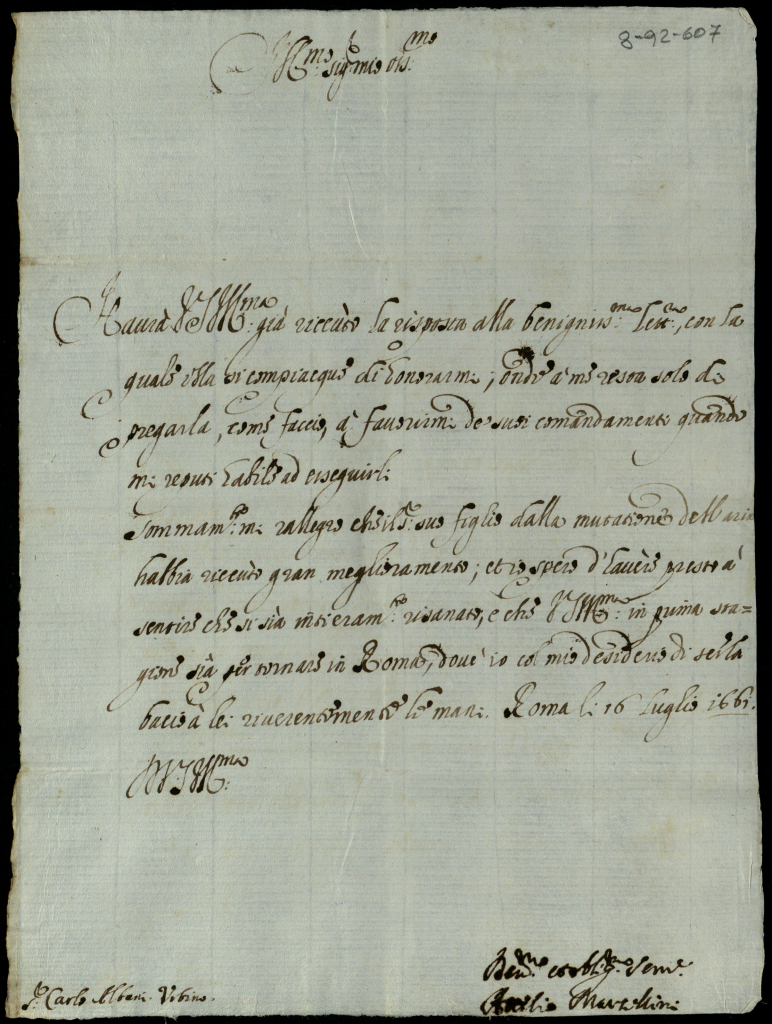 8-92-607
Ill.mo sig.r mio oss.mo
Haurà V.S. Ill.ma già riceuuto la risposta alla benigniss.ma lett.ra, con la
quale ella si compiacque di honorarmi; onde à me resta solo di
pregarla, come faccio, à fauorirmi de suoi comandamenti quando
mi reputi habile ad esseguirli
Sommam.te mi rallegro che il s.r suo figlio dalla mutatione dell'aria
habbia riceuuto gran meglioramento; et io spero d'hauere presto à
sentire che si sia intieram.te risanato, e che V.S. Ill.ma in prima sta=
gione sia per tornare in Roma, doue io col mio desiderio di seruirla
bacio à lei riuerentemente le mani. Roma li 16 luglio 1661.
D.V.S. Ill.ma
Deu.mo et obl.mo Seru.re
Marcellini
S.r Carlo Albani. Vrbino.